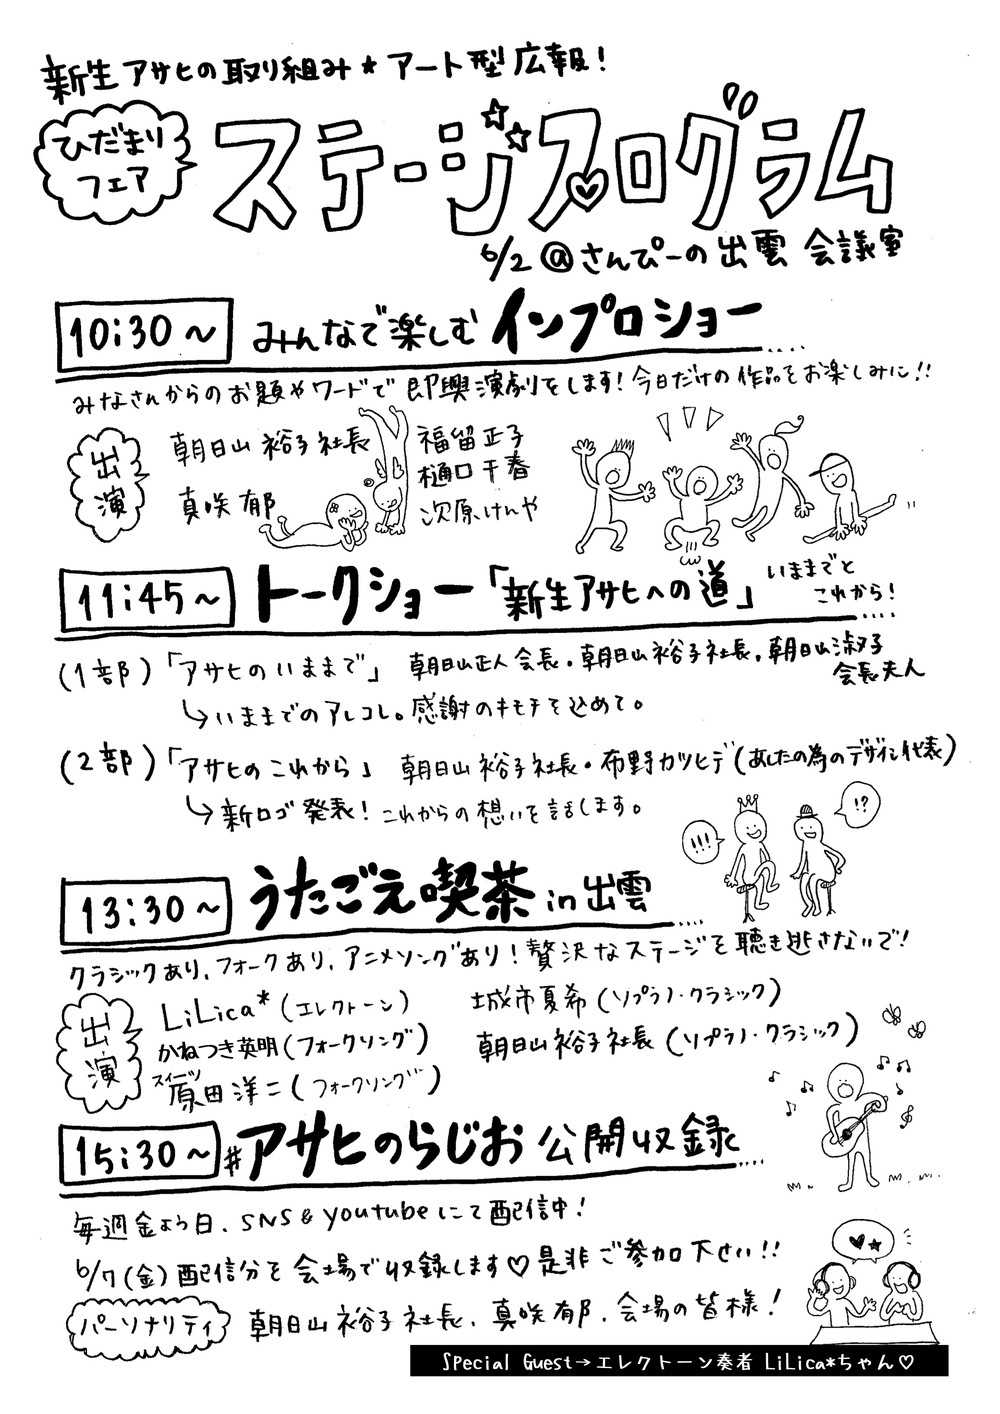 新生アサヒの取り組み★アート型広報!
ひだまり
フェア
ステージプログラム
6/2@さんぴーの出雲 会議室
10:30〜 みんなで楽しむ インプロショー....
みなさんからのお題やワードで 即興演劇をします!今日だけの作品をお楽しみに!!
出演
朝日山裕子社長 福留正子
樋口千春
真咲郁 次原けんや
11:45〜 トークショー「新生アサヒへの道」いままでと
これから!....
(1部)「アサヒのいままで」 朝日山正人会長・朝日山裕子社長・朝日山淑子
会長夫人
↳いままでのアレコレ。感謝のキモチを込めて。
(2部)「アサヒのこれから」 朝日山裕子社長・布野カツヒデ(あしたの為のデザイン代表)
↳新ロゴ発表!これからの想いを話します。
!!!
!?
13:30〜 うたごえ喫茶 in出雲....
クラシックあり、フォークあり、アニメソングあり!贅沢なステージを聴き逃さないで!
出演
LiLica*(エレクトーン) 城市夏希(ソプラノ・クラシック)
かねつき英明(フォークソング) 朝日山裕子社長(ソプラノ・クラシック)
スイーツ
原田洋二(フォークソング)
15:30〜 #アサヒのらじお 公開収録....
毎週金よう日、SNS&youtubeにて配信中!
6/7(金)配信分を会場で収録します♡是非ご参加下せい!!
パーソナリティ 朝日山裕子社長、真咲郁、会場の皆様!
Special Guest→エレクトーン奏者 LiLica*ちゃん♡